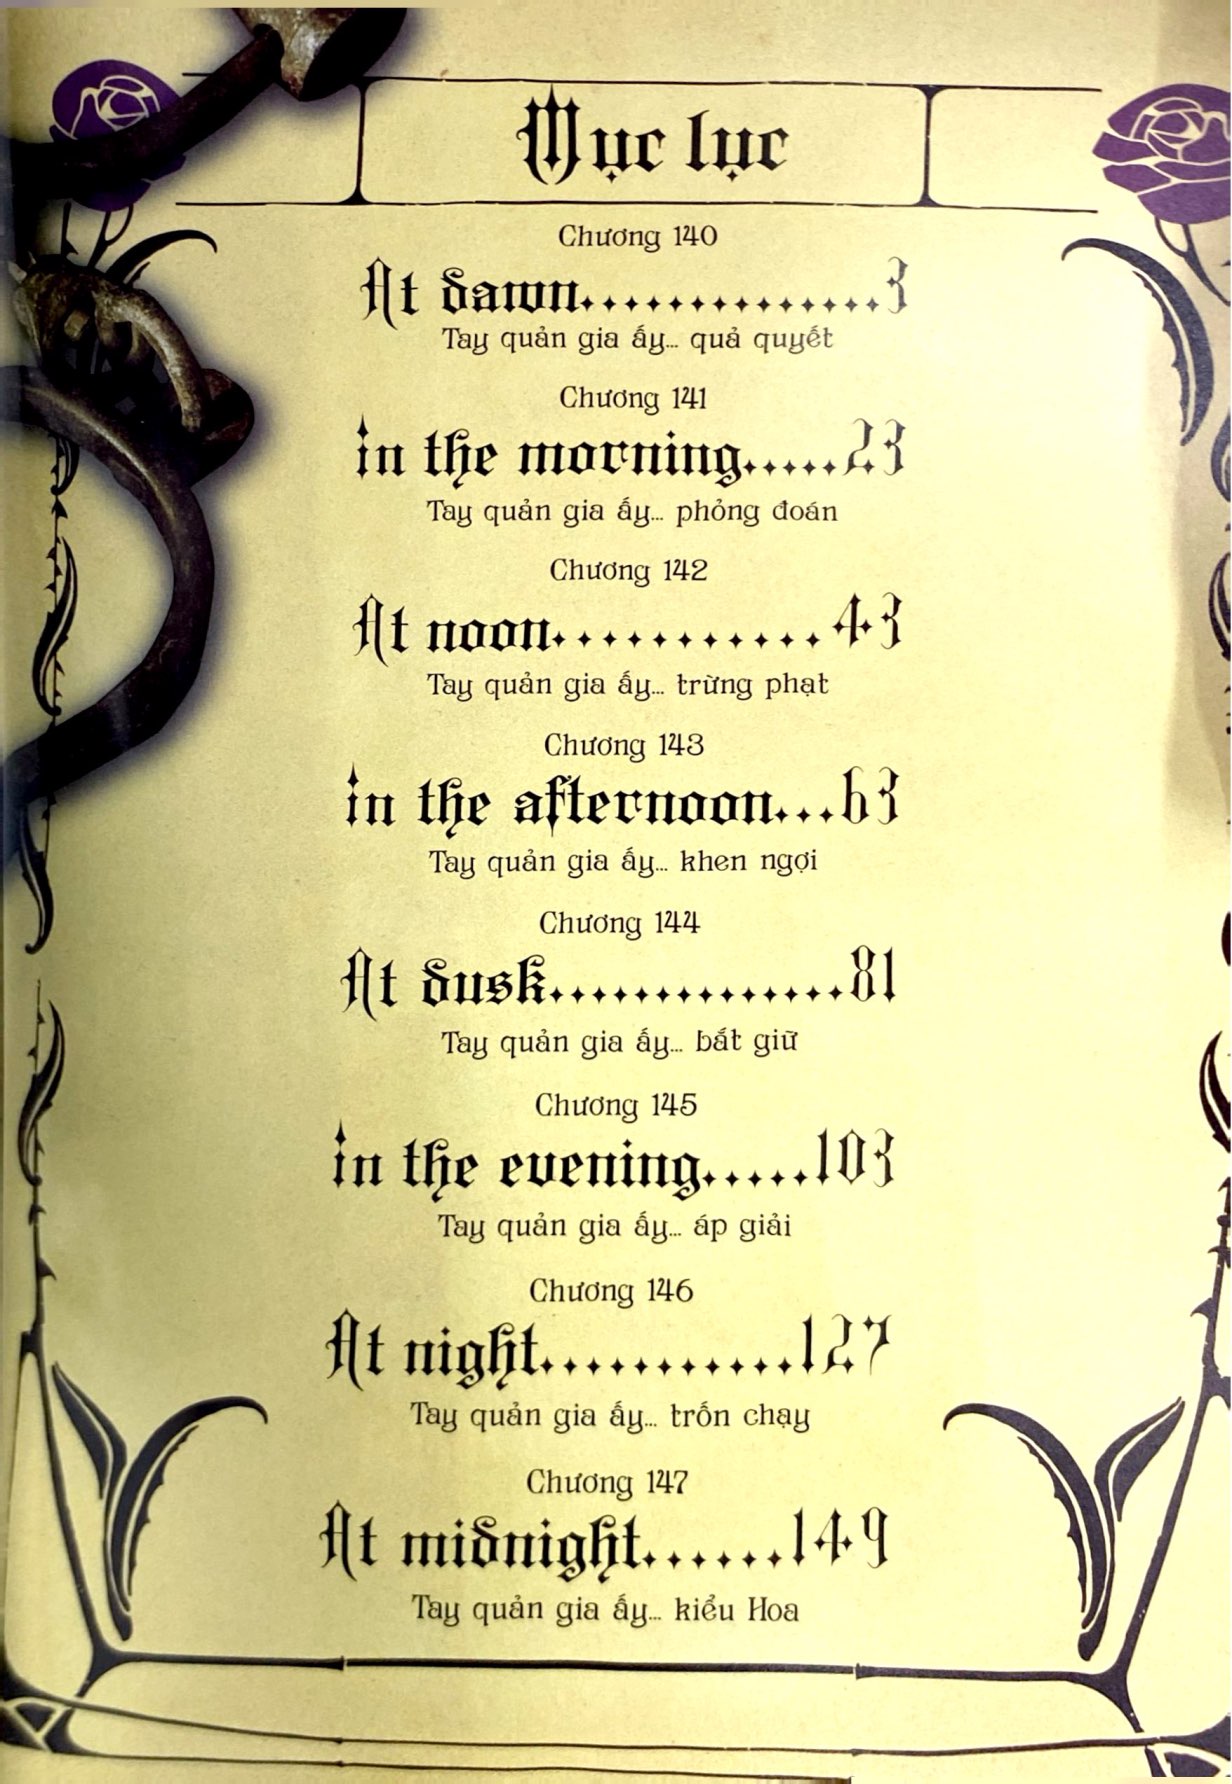 Mục lục
Chương 140
At dawn..............3
Tay quản gia ấy... quả quyết
Chương 141
in the morning.....23
Tay quản gia ấy... phỏng đoán
Chương 142
At noon...........43
Tay quản gia ấy... trừng phạt
Chương 143
in the afternoon...63
Tay quản gia ấy... khen ngợi
Chương 144
At dusk..............81
Tay quản gia ấy... bắt giữ
Chương 145
in the evening.....103
Tay quản gia ấy... áp giải
Chương 146
At night...........127
Tay quản gia ấy... trốn chạy
Chương 147
At midnight......149
Tay quản gia ấy... kiểu Hoa